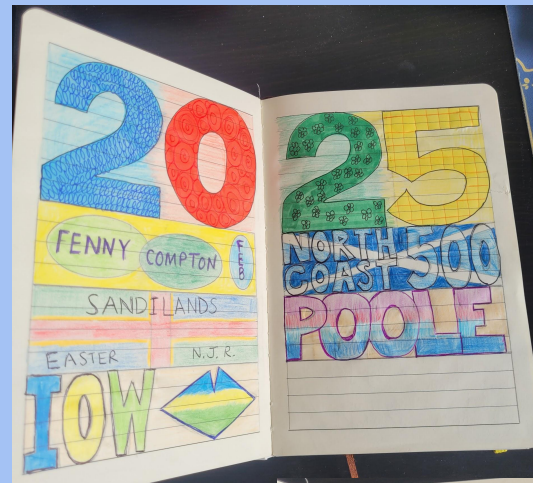 20
FENNY COMPTON FEB
SANDILANDS
EASTER N.J.R.
IOW
25
NORTH COAST 500
POOLE